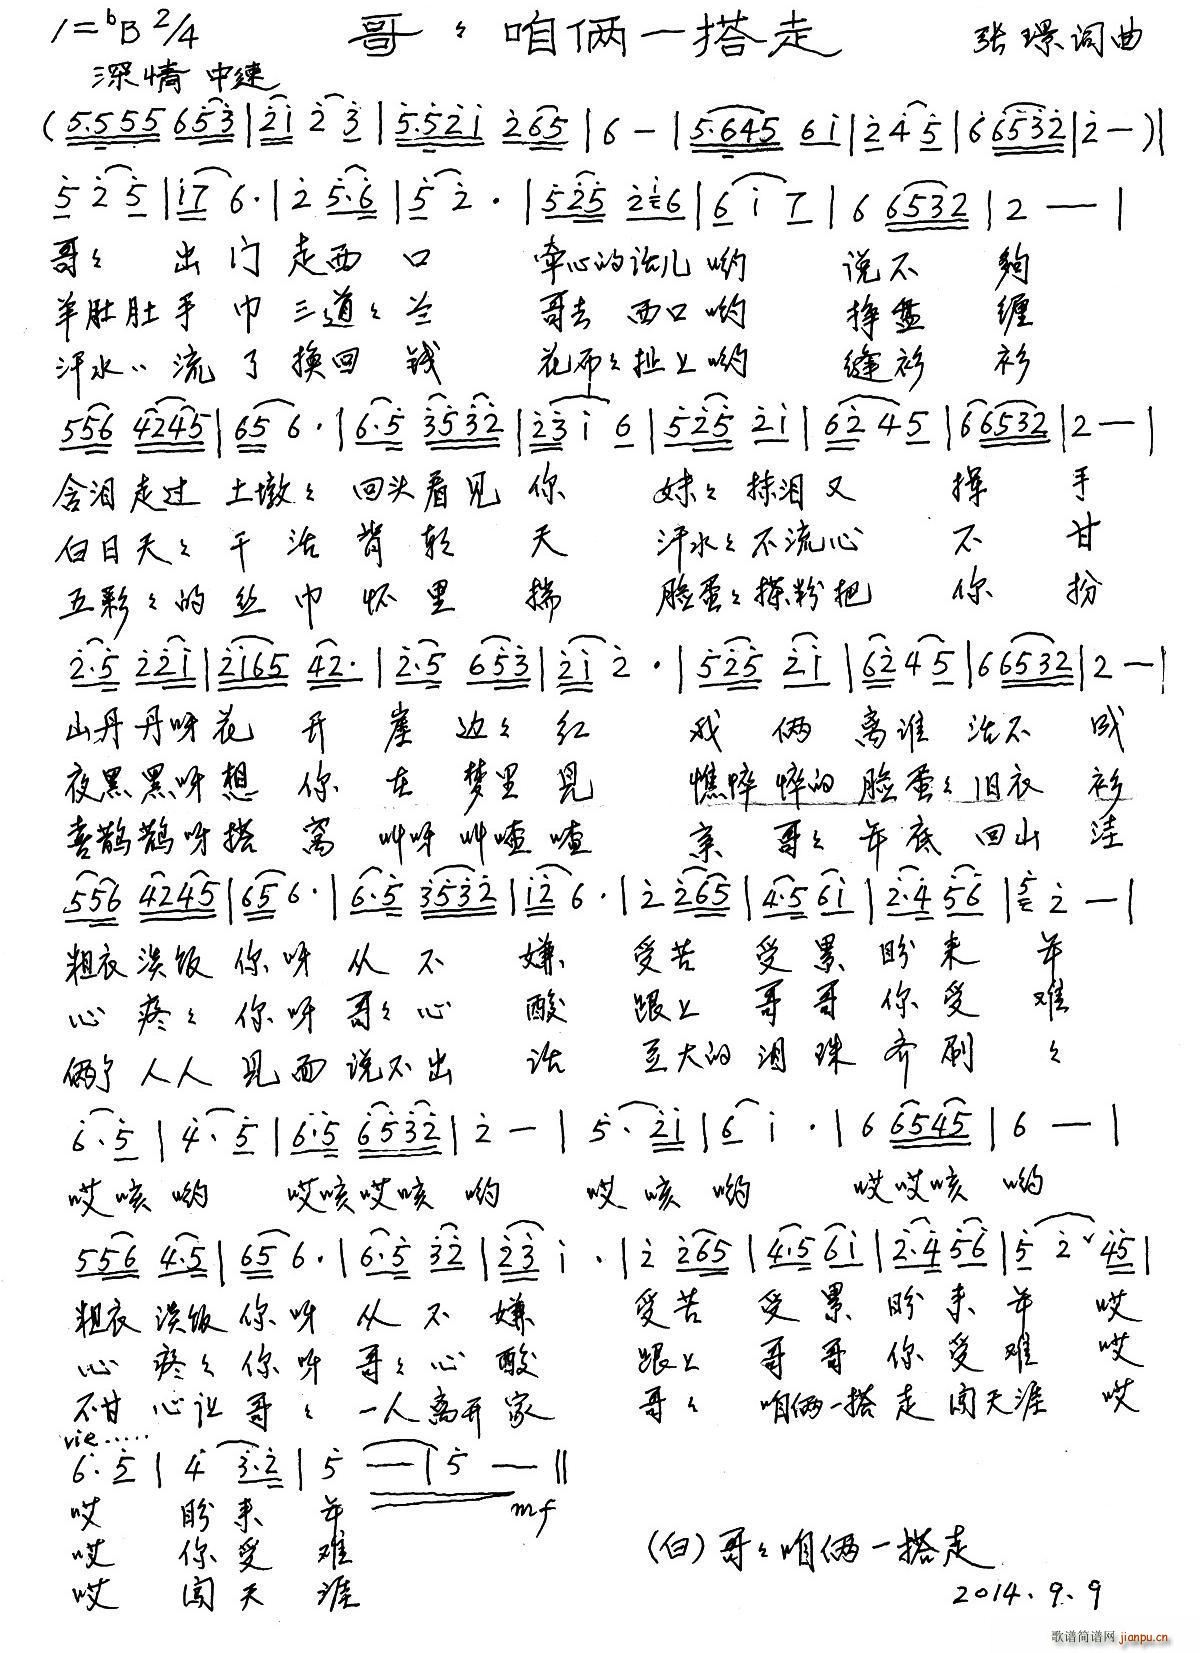 1=bB 2/4 哥々咱俩一搭走 张璟词曲
深情 中速
(5.555 653|21 23|5.521 265|6 -|5.645 61|245|66532|2 -)|
525|17 6.|2 5.6|5 2.|525 216|6 1 7|6 6532|2 -|
哥々出门走西口 牵心的话儿哟 说不够
羊肚肚手巾三道々兰 哥去西口哟 挣盘缠
汗水〃流了换回钱 花布々扯上哟 缝衫衫
556 4245|65 6.|6.5 3532|23 1 6|525 21|62 45|66532|2 -|
含泪走过土墩々回头看见你 妹々抹泪又挥手
白日天々干活背朝天 汗水々不流心不甘
五彩々的丝巾怀里揣 脸蛋々搽粉把你扮
2.5 221|2165 42.|2.5 653|21 2.|525 21|62 45|66532|2 -|
山丹丹呀花开崖边々红 我俩离谁活不成
夜黑黑呀想你在梦里见 憔悴悴的脸蛋々旧衣衫
喜鹊鹊呀搭窝叫呀叫喳喳 亲哥々年底回山洼
556 4245|65 6.|6.5 3532|12 6.|2 265|4.5 61|2.4 56|5 2 -|
粗衣淡饭你呀从不嫌 受苦受累盼来年
心疼々你呀哥々心酸 跟上哥哥你受难
俩个人人见面说不出话 豆大的泪珠齐刷々
6.5|4.5|6.5 6532|2 -|5.21|6 1.|6 6545|6 -|
哎咳哟 哎咳哎咳哟 哎咳哟 哎哎咳哟
556 4.5|65 6.|6.5 32|23 1.|2 265|4.5 61|2.4 56|5 2ᵛ45|
粗衣淡饭你呀从不嫌 受苦受累盼来年 哎
心疼々你呀哥々心酸 跟上哥哥你受难 哎
不甘心让哥々一人离开家 哥々咱俩一搭走闯天涯 哎
vie......
6.5|4 3.2|5 -|5 -‖
mf
哎 盼来年
哎 你受难
哎 闯天涯
(白)哥々咱俩一搭走
2014.9.9
歌谱简谱网
jianpu.cn